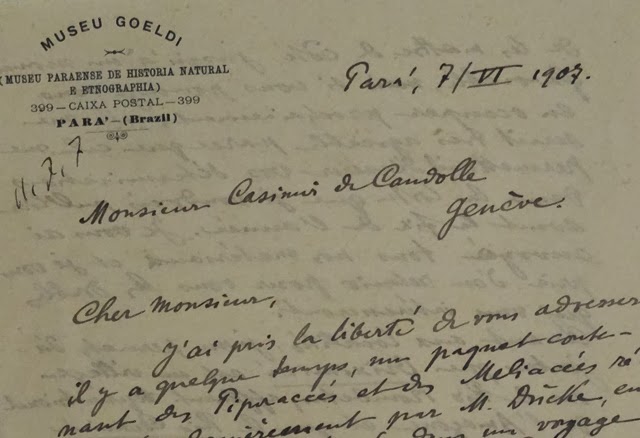 MUSEU GOELDI
(MUSEU PARAENSE DE HISTORIA NATURAL
E ETNOGRAPHIA)
399—CAIXA POSTAL—399
PARA'—(Brazil)
Pará, 7/VI 1907.
11.7.7
Monsieur Casimir de Candolle
Genève.
Cher Monsieur,
J'ai pris la liberté de vous adresser
il y a quelque temps, un paquet conte-
nant des Piperacées et des Meliacées ré
par M. Ducke, en
dans un voyage